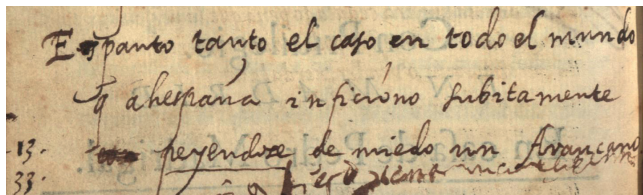 Espanto tanto el caso en todo el mundo
q ahespaña inficiono subitamente
13. peyendose de miedo un Avançant
33.